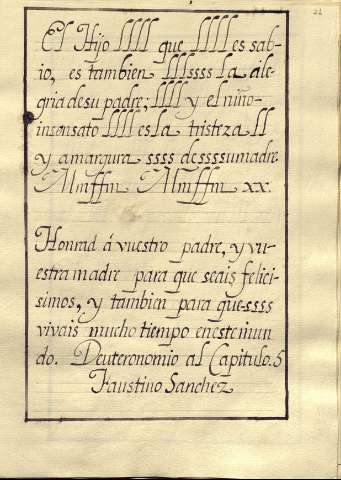 El Hijo llll que llll es sab-
io, es tambien lllssss la ale-
gria de su padre; llll y el niño
insensato llll es la tristeza ll
y amargura ssss dessssumadre
Almffm Almffm xx.
Honrad á vuestro padre, y vu-
estra madre para que seais felici-
simos, y tambien para que ssss
vivais mucho tiempo eneste mun
do. Deuteronomio al Capitulo. 5
Faustino Sanchez